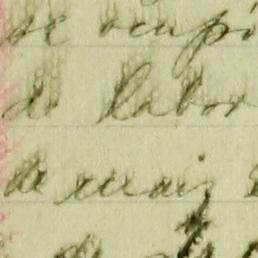 se ocupó
de labor
de maiz